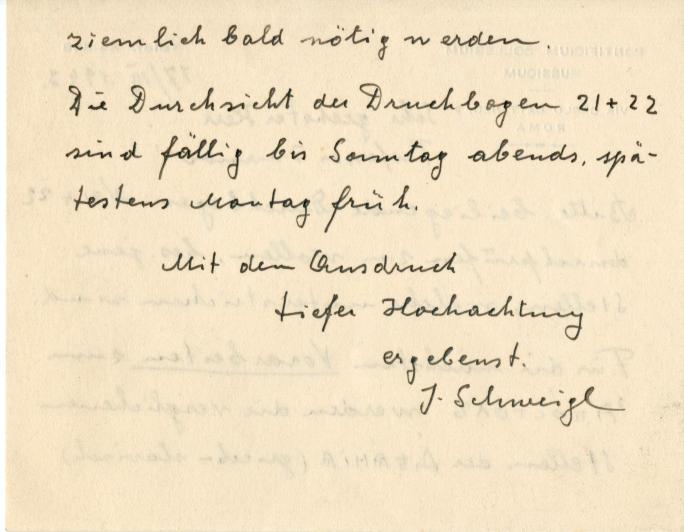 ziemlich bald nötig werden.
Die Durchsicht der Druckbogen 21+22
sind fällig bis Sonntag abends, spä-
testens Montag früh.
Mit dem Ausdruck
tiefer Hochachtung
ergebenst.
J. Schweigl